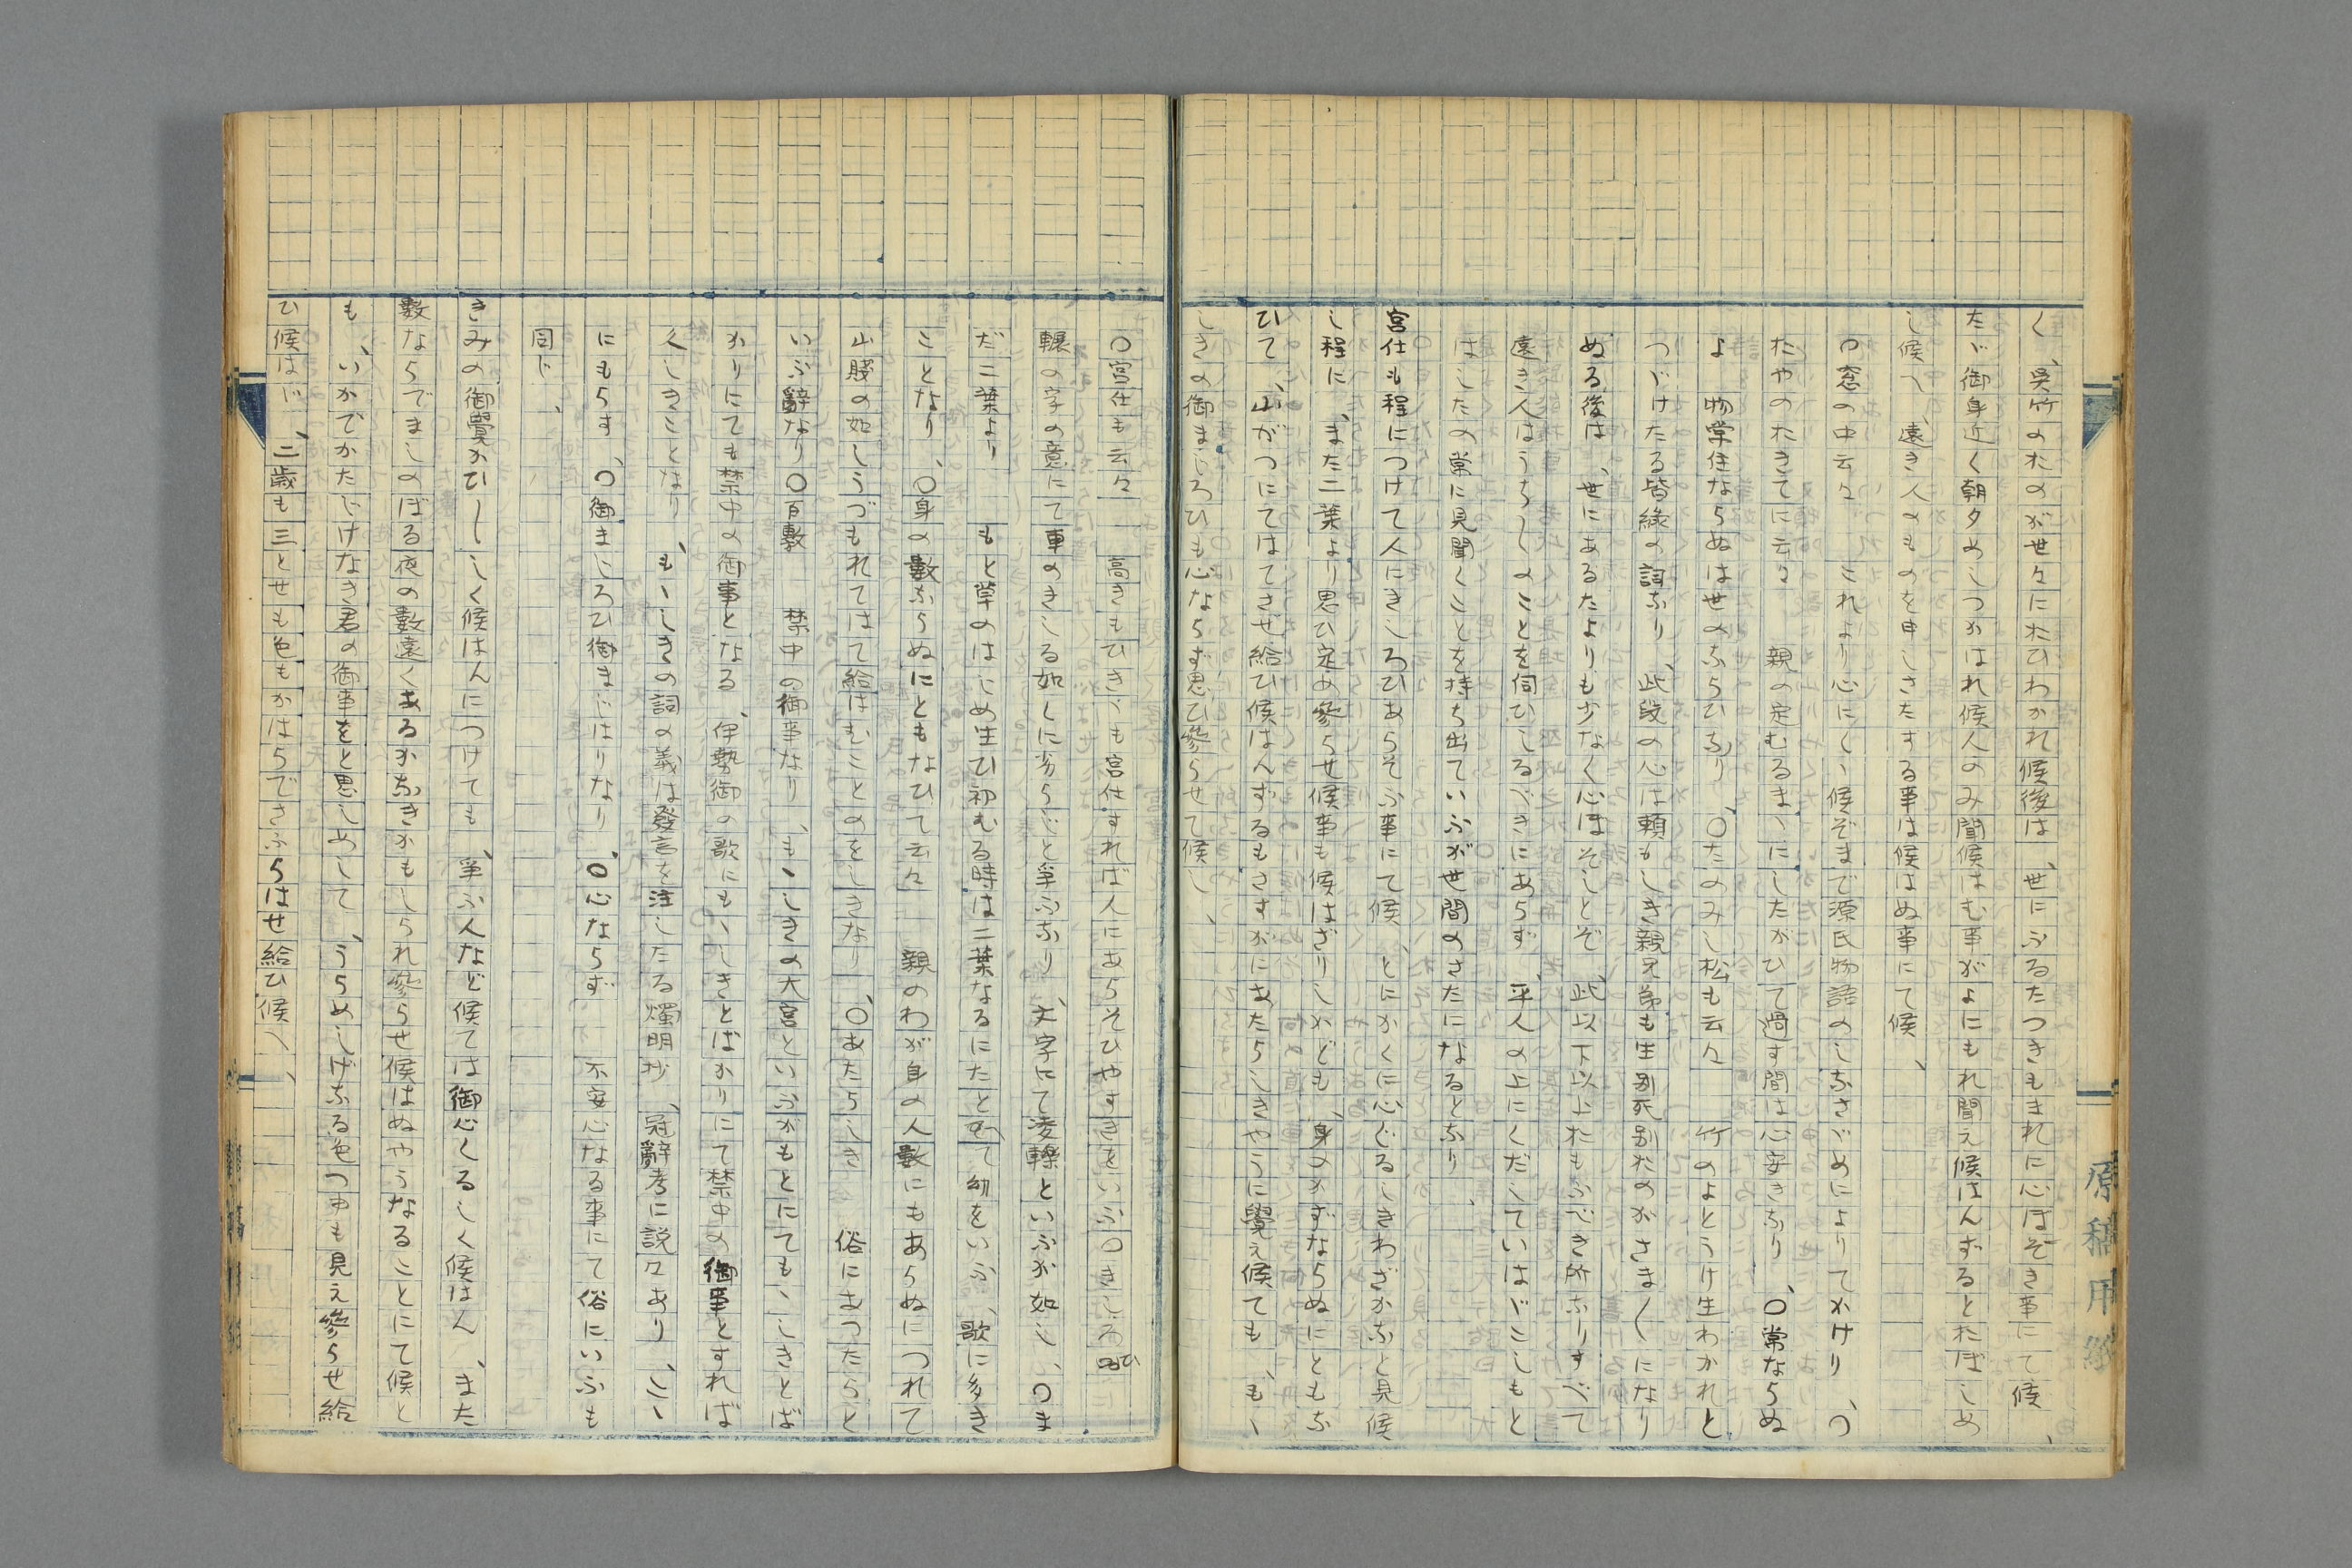 く、呉竹のおのが世々におひわかれ候後は、世にふるたつきもまれに心ぼそき事にて候、
たゞ御身近く朝夕めしつかはれ候人のみ聞候はむ事がよにもれ聞え候はんずるとおぼしめ
し候へ、遠き人のものを申しさたする事は候はぬ事にて候、
〇窓の中云々　これより心にくゝ候ぞまで源氏物語のしなさだめによりてかけり、〇
おやのおきてに云々　親の定むるまゝにしたがひて過す間は心安きなり、〇常ならぬ
よ　物常住ならぬは世のならひなり、〇たのみし松も云々　竹のよとうけ生わかれと
つゞけたる皆縁の詞なり、此段の心は頼もしき親兄弟も生別死別おのがさま〱になり
ぬる後は、世にあるたよりも少なく心ほそしとぞ　此以下以上おもふべき所なりすべて
遠き人はうち〱のことを伺ひしるべきにあらず、平人の上にくだしていはゞこしもと
はしたの常に見聞くことを持ち出ていふが世間のさたになるとなり、
宮仕も程につけて人にきしろひあらそふ事にて候、とにかくに心ぐるしきわざかなと見候
し程に、また二葉より思ひ定め參らせ候事も候はざりしかども、身のかずならぬにともな
ひて、山がつにてはてさせ給ひ候はんずるもさすがにあたらしきやうに覺え候ても、もゝ
しきの御まじろひも心ならず思ひ參らせて候し、
〇宮仕も云々　高きもひきゝも宮仕すれば人にあらそひやすきをいふ〇きしろひ
輾の字の意にて車のきしる如しに劣らじと爭ふなり、文字にて凌轢といふが如し、〇ま
だ二葉より　もと草のはじめ生ひ初むる時は二葉なるにたとへて幼をいふ、歌に多き
ことなり、〇身の數ならぬにともなひて云々　親のわが身の人數にもあらぬにつれて
山賤の如しうづもれてはて給はむことのをしきなり、〇あたらしき　俗にあつたらと
いふ辭なり〇百敷　禁中の御事なり、もゝしきの大宮といふがもとにてもゝしきとば
かりにても禁中の御事となる、伊勢御の歌にもゝしきとばかりにて禁中の御事とすれば
久しきことなり、もゝしきの詞の義は發言を注したる燭明抄、冠辭考に説々あり、こゝ
にもらす、〇御まじろひ御まじはりなり、〇心ならず　不安心なる事にて俗にいふも
同じ、
きみの御覺かひ〱しく候はんにつけても、爭ふ人など候ては御心くるしく候はん、また
數ならでましのぼる夜の數遠くあるかなきかもしられ參らせ候はぬやうなることにて候と
も、いかでかたじけなき君の御事をと思しめして、うらめしげなる色つゆも見え參らせ給
ひ候はじ、二歳も三とせも色もかはらでさふらはせ給ひ候へ、
原稿用紙